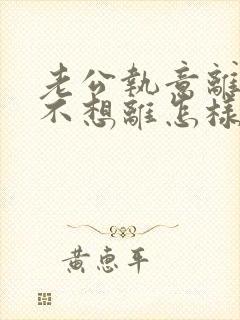 老公執意離
不想離怎樣
黃惠平